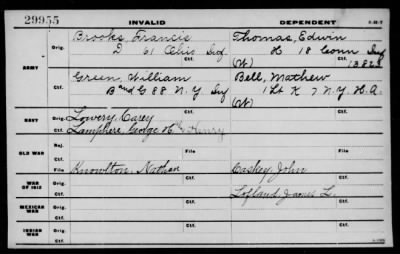 29955 INVALID DEPENDENT
Brooks, Francis Thomas, Edwin
Orig. D 61 Ohio Inf H 18 Conn Inf
Ctf. (W) Ctf. 13828
ARMY
Green, William Bell, Mathew
Orig. B and G 88 N.Y. Inf 1 Lt K 7 N.Y. H.A.
Ctf. (W) Ctf.
NAVY Orig. Lowery, Carey
Ctf. Lamphere, George H. Henry Ctf.
OLD WAR Rej.
Ctf. File
File Knowlton, Nathan Caskey, John
WAR OF 1812 Orig. Lofland, James L.
Ctf. Ctf.
MEXICAN WAR Orig.
Ctf. Ctf.
INDIAN WAR Orig.
Ctf. Ctf.